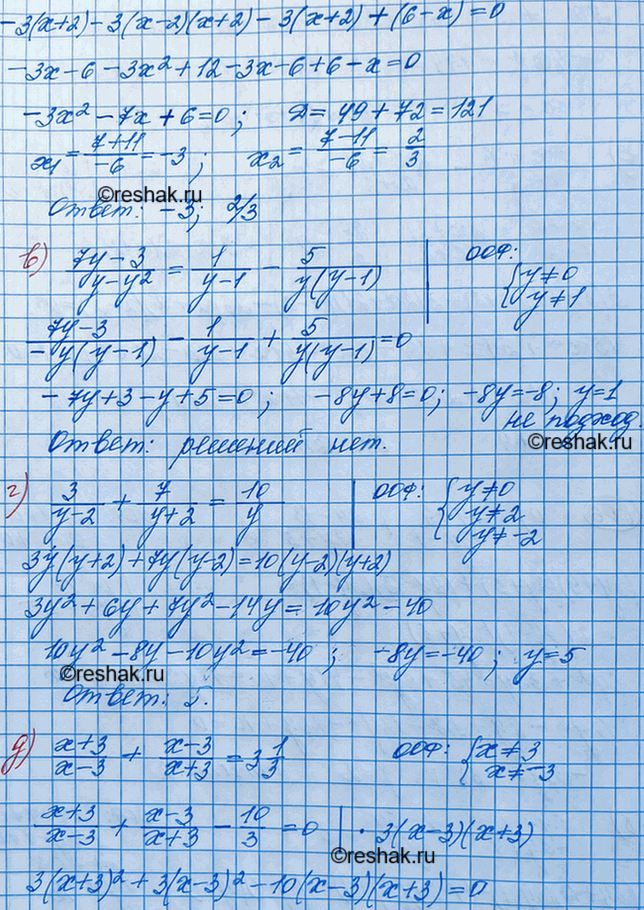 -3(x+2)-3(x-2)(x+2)-3(x+2)+(6-x)=0
-3x-6-3x²+12-3x-6+6-x=0
-3x²-7x+6=0; D=49+72=121
x₁=(7+11)/-6=-3; x₂=(7-11)/-6=2/3
©reshak.ru
Ответ: -3; 2/3
в) (7y-3)/(y-y²)=1/(y-1)-5/(y(y-1)) | ООФ: {y≠0
y≠1
(7y-3)/(-y(y-1))-1/(y-1)+5/(y(y-1))=0
-7y+3-y+5=0; -8y+8=0; -8y=-8; y=1
не подход.
Ответ: решений нет.
©reshak.ru
г) 3/(y-2)+7/(y+2)=10/y | ООФ: {y≠0
y≠2
y≠-2
3y(y+2)+7y(y-2)=10(y-2)(y+2)
3y²+6y+7y²-14y=10y²-40
10y²-8y-10y²=-40; -8y=-40; y=5
©reshak.ru
Ответ: 5.
д) (x+3)/(x-3)+(x-3)/(x+3)=3 1/3 ООФ: {x≠3
x≠-3
(x+3)/(x-3)+(x-3)/(x+3)-10/3=0 | ·3(x-3)(x+3)
©reshak.ru
3(x+3)²+3(x-3)²-10(x-3)(x+3)=0